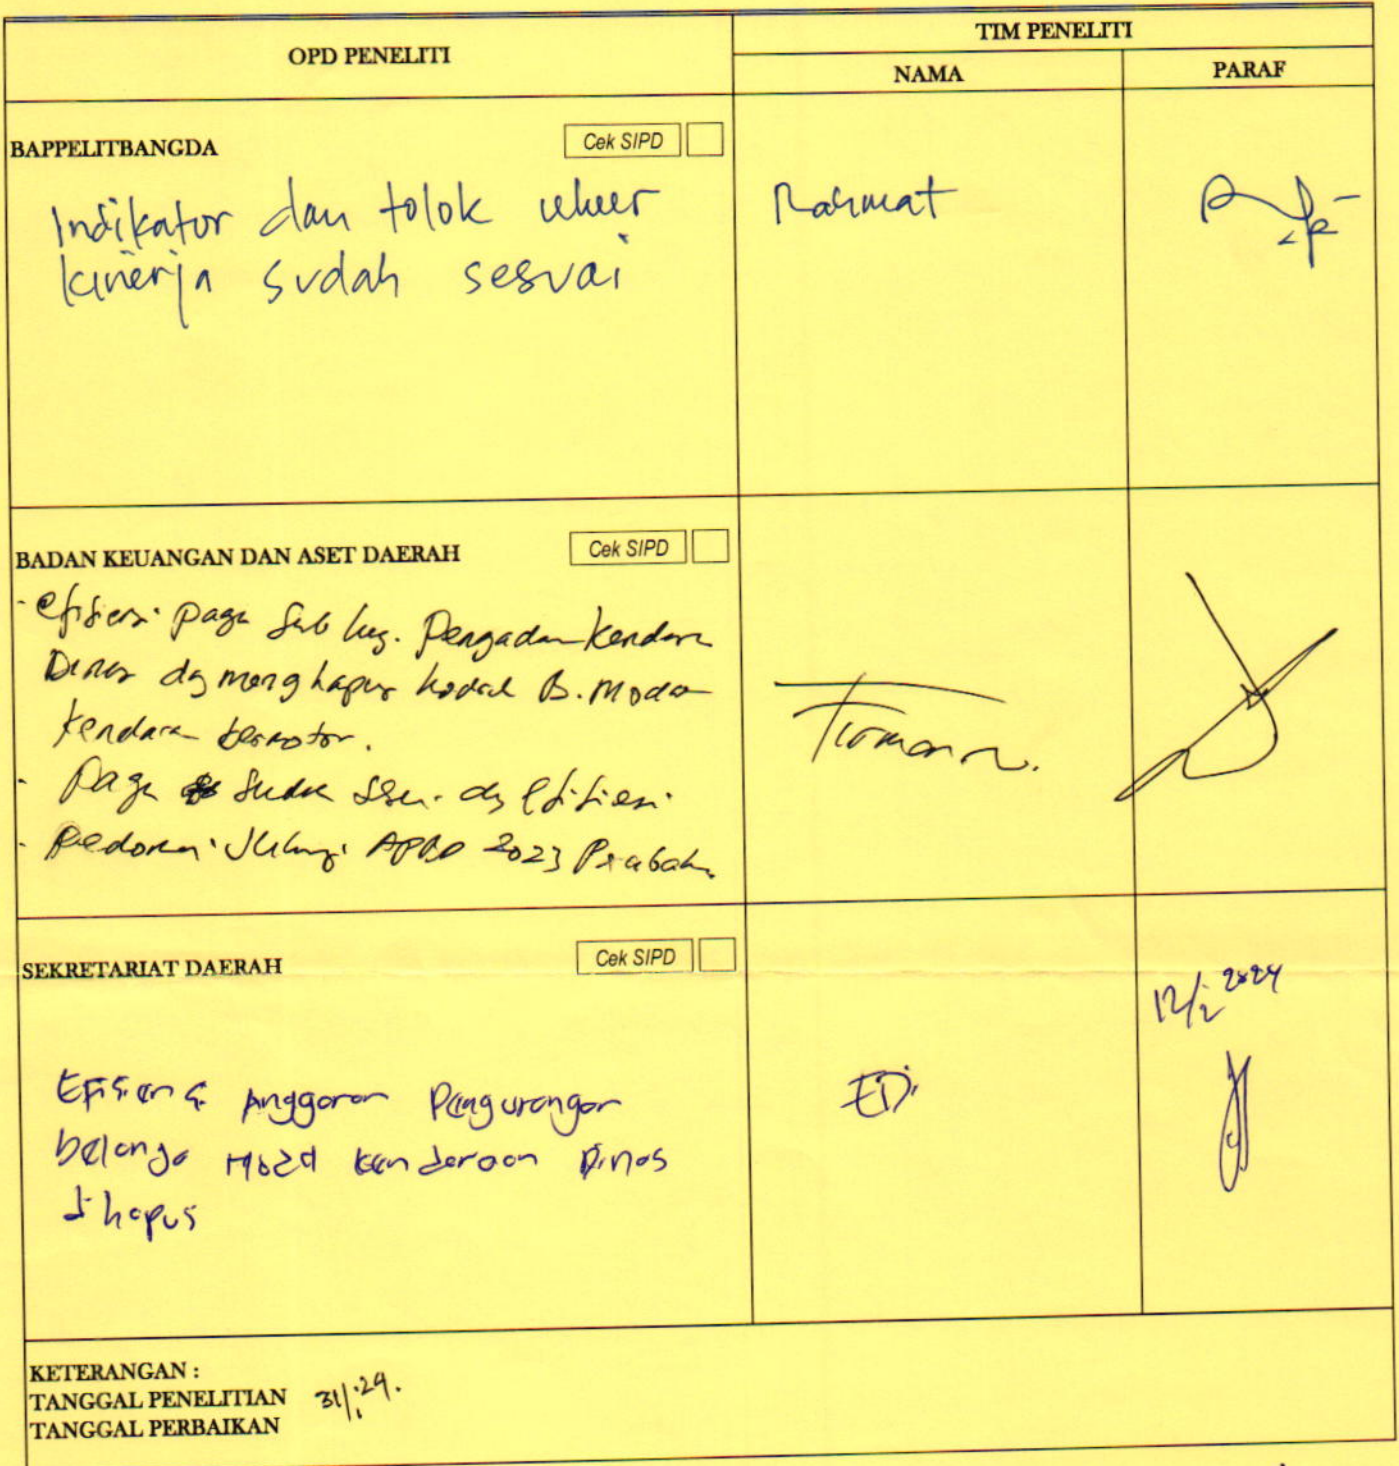 OPD PENELITI
TIM PENELITI
NAMA
PARAF
BAPPELITBANGDA
Cek SIPD
Indikator dan tolok ukur
kinerja sudah sesuai
Rahmat
BADAN KEUANGAN DAN ASET DAERAH
Cek SIPD
- efisiensi pagu Sub keg. Pengadaan Kendara
Dinas dg menghapus B. Modal
Kendara bermotor.
- Pagu sudah dg efisiensi
- Pedoman APBD 2023
Firman
SEKRETARIAT DAERAH
Cek SIPD
12/2 2024
Efisiensi Anggaran Pengurangan
belanja Modal kendaraan Dinas
dihapus
EDi
KETERANGAN :
TANGGAL PENELITIAN
TANGGAL PERBAIKAN